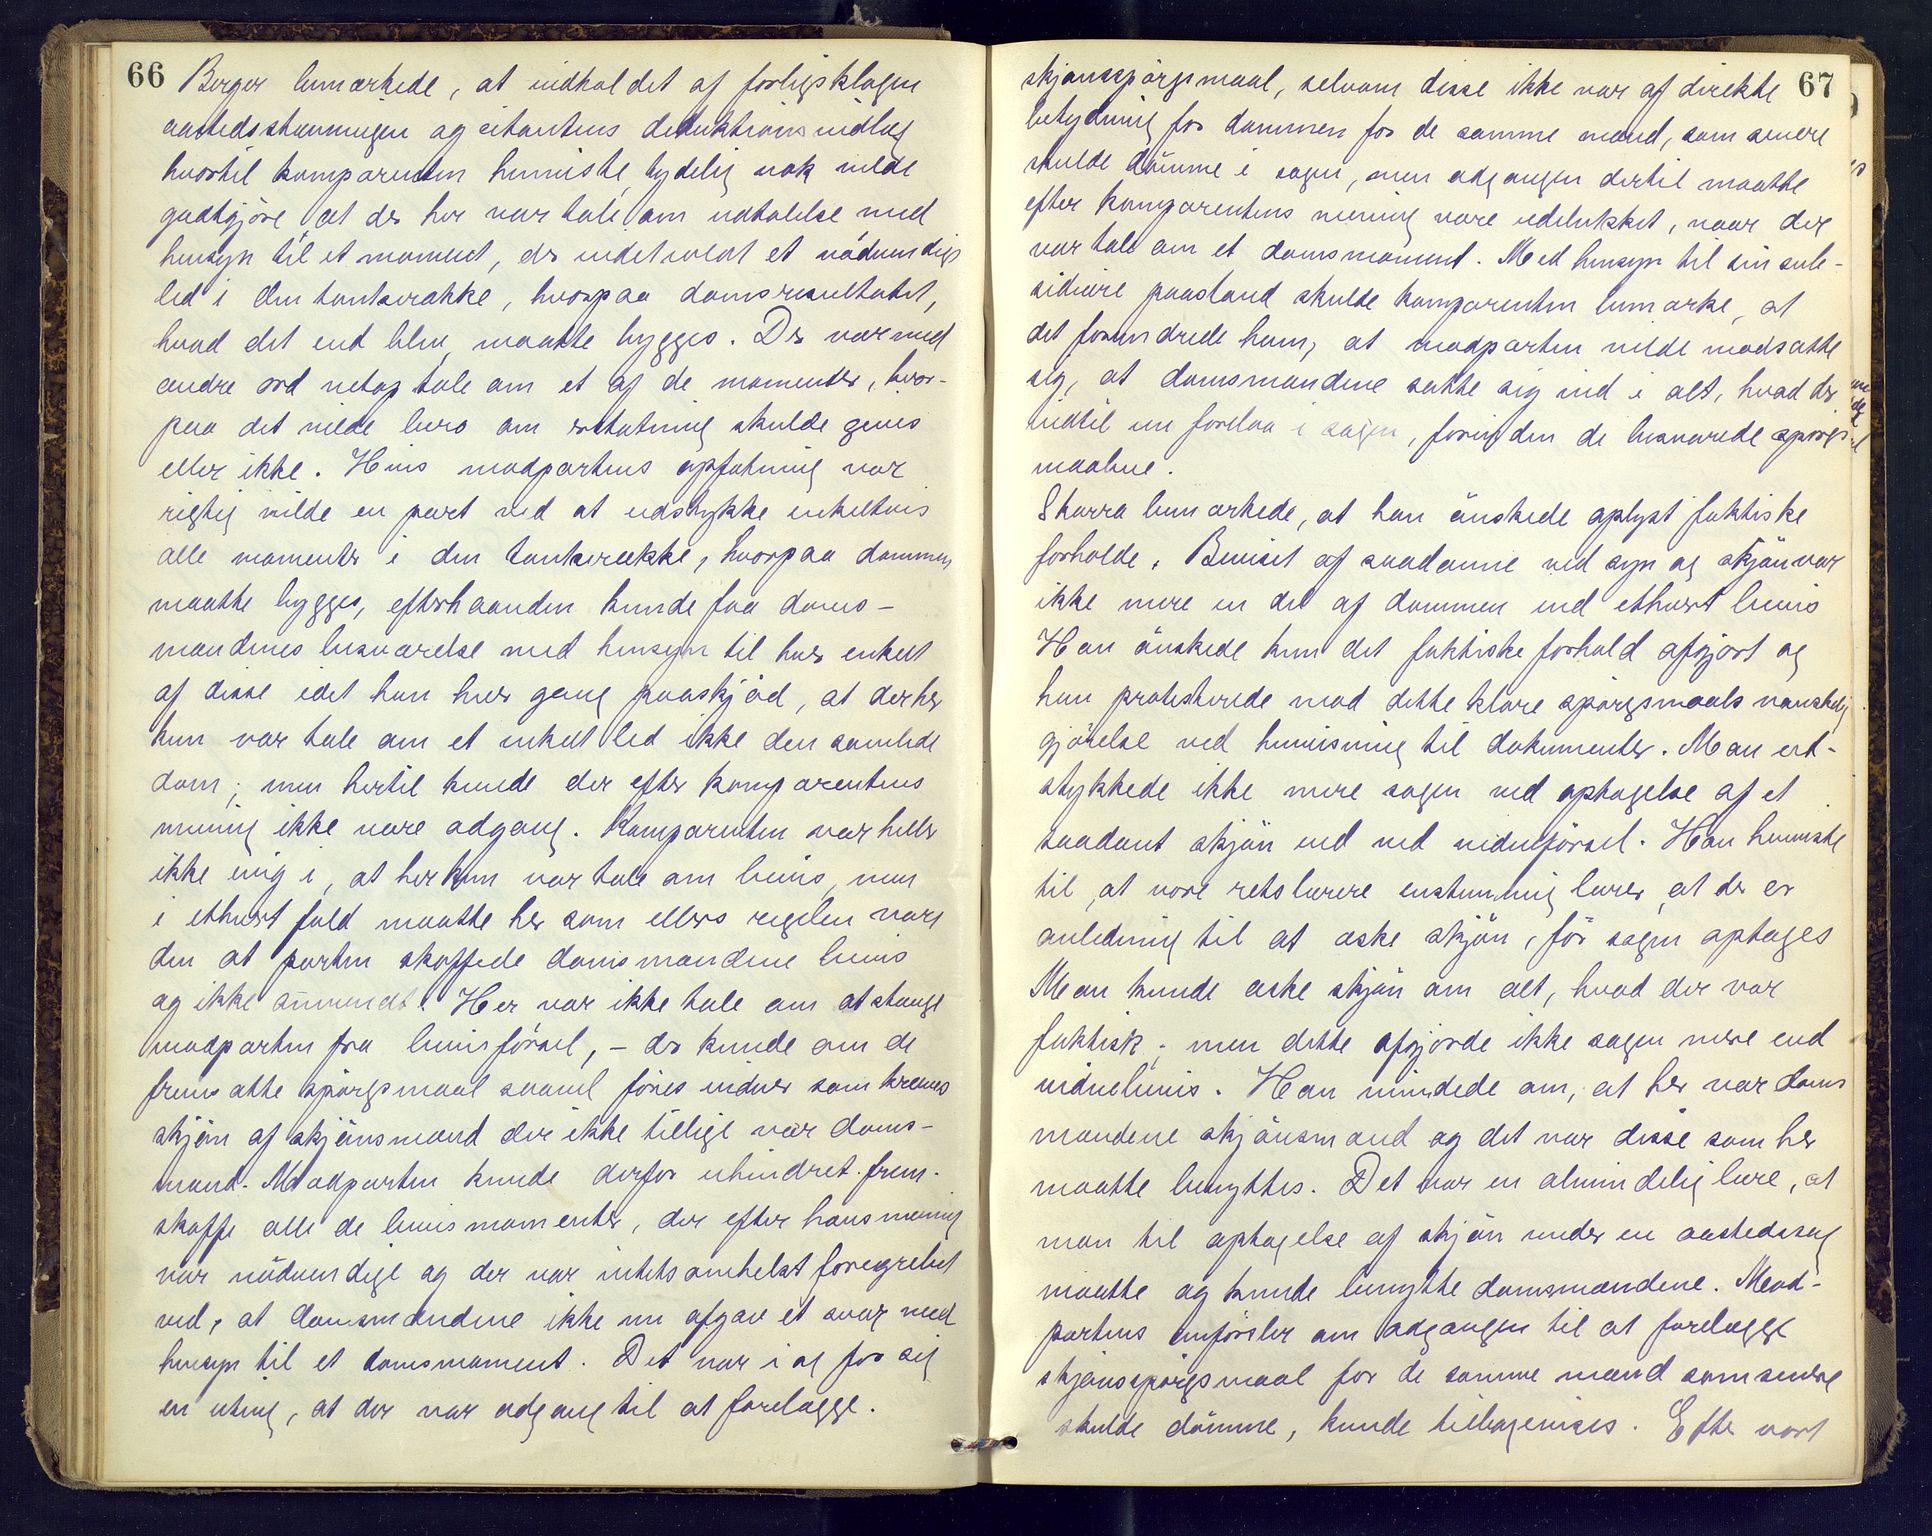 66
Berger bemærkede, at indholdet af forligsklagen
aastedsstævningen og citantens deduktionsindlæg
hvortil komparenten henviste, tydelig nok vilde
godtgjøre, at der her var tale om udtalelse med
hensyn til et moment, der indeholdt et nödvendigt
led i den tankerække, hvorpaa domsresultatet,
hvad det end blev, maatte bygges. Der var med
andre ord netop tale om et af de momenter, hvor-
paa det vilde bero om erstatning skulde gives
eller ikke. Hvis modpartens opfatning var
rigtig vilde en part ved at udstykke enkeltvis
alle momenter i den tankerække, hvorpaa dommen
maatte bygges, efterhaanden kunde faa doms-
mændenes besvarelse med hensyn til hver enkelt
af disse idet han hver gang paaskjöd, at der her
kun var tale om et enkelt led ikke den samlede
dom; men hertil kunde der efter komparentens
mening ikke være adgang. Komparenten var heller
ikke enig i, at her kun var tale om bevis, men
i ethvert fald maatte her som ellers regelen være
den at parten skaffede domsmændene bevis
og ikke omvendt. Her var ikke tale om at stænge
modparten fra bevisförsel, – der kunde om de
fremsatte spörgsmaal saavel föres vidner som kræves
skjön af skjönsmænd der ikke tillige var doms-
mænd. Modparten kunde derfor uhindret frem-
skaffe alle de bevismomenter, der efter hans mening
var nödvendige og der var intetsomhelst foregrebet
ved, at domsmændene ikke nu afgav et svar med
hensyn til et domsmoment. Det var i og for sig
en uting, at der var adgang til at forelægge
67
skjönsspörgsmaal, selvom disse ikke var af direkte
betydning for dommen for de samme mænd, som senere
skulde dömme i sagen, men adgangen dertil maatte
efter komparentens mening være udelukket, naar der
var tale om et domsmoment. Med hensyn til sin sub-
sidiære paastand skulde komparenten bemærke, at
det forundrede ham, at modparten vilde modsætte
sig, at domsmændene satte sig ind i alt, hvad der
indtil nu forelaa i sagen, forinden de besvarede spörgs-
maalene.
Skarra bemærkede, at han önskede oplyst faktiske
forholde. Beviset af saadanne ved syn og skjön var
ikke mere en del af dommen end ethvert bevis
Han önskede kun det faktiske forhold afgjort og
han protesterede mod dette klare spörgsmaals vanskelig
gjörelse ved henvisning til dokumenter. Man ud-
stykkede ikke mere sagen ved optagelse af et
saadant skjön end ved vidneförsel. Han henviste
til, at vore retslærere enstemmig lærer, at der er
anledning til at æske skjön, för sagen optages
Man kunde æske skjön om alt, hvad der var
faktisk; men dette afgjorde ikke sagen mere end
vidnebevis. Han mindede om, at her var doms
mændene skjönsmænd og det var disse som her
maatte benyttes. Det var en almindelig lære, at
man til optagelse af skjön under en aastedssag
maatte og kunde benytte domsmændene. Mod-
partens anförsler om adgangen til at forelægge
skjönsspörgsmaal for de samme mænd som senere
skulde dömme, kunde tilbagevises. Efter vort